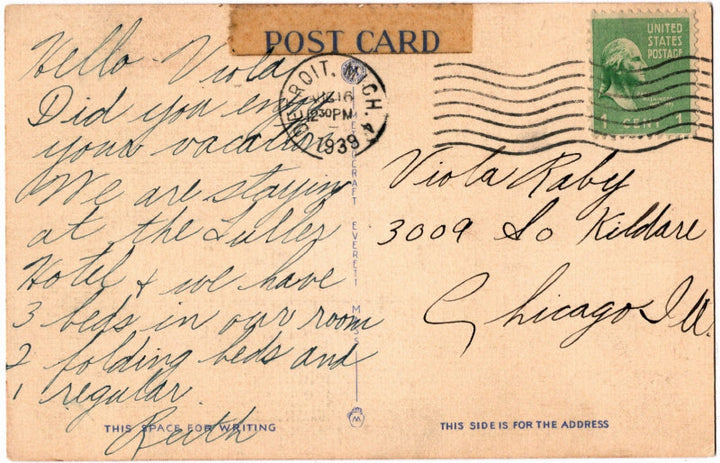 POST CARD
Hello Viola
Did you enjoy
your vacation
We are staying
at the Tuller
Hotel & we have
3 beds in our room
2 folding beds and
1 regular.
Ruth
THIS SPACE FOR WRITING
METROCRAFT EVERETT MASS
DETROIT, MICH. 4
16
1230PM
1939
UNITED
STATES
POSTAGE
1 CENT 1
Viola Raby
3009 So Kildare
Chicago Ill.
THIS SIDE IS FOR THE ADDRESS